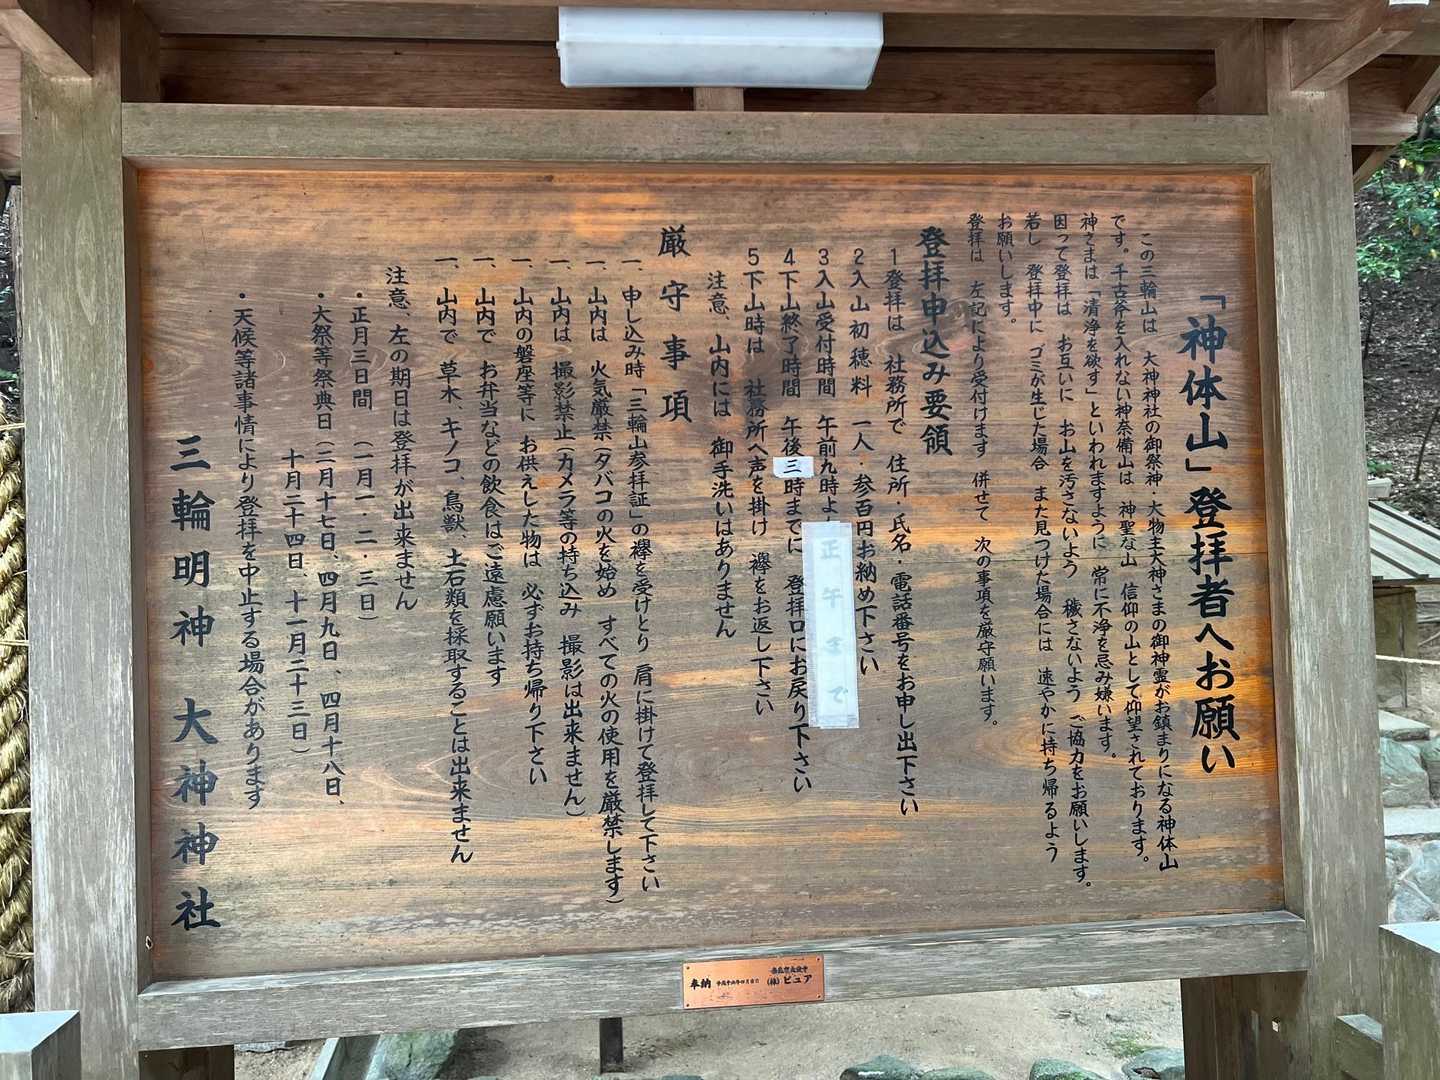 「神体山」登拝者へお願い
この三輪山は　大神神社の御祭神・大物主大神さまの御神霊がお鎮まりになる神体山
です。千古斧を入れない神奈備山は　神聖な山　信仰の山として仰望されております。
神さまは「清浄を欲す」といわれますように　常に不浄を忌み嫌います。
因って登拝は　お互いに　お山を汚さないよう　穢さないよう　ご協力をお願いします。
若し　登拝中に　ゴミが生じた場合　また見つけた場合には　速やかに持ち帰るよう
お願いします。
登拝は　左記により受付けます　併せて　次の事項を厳守願います。
登拝申込み要領
1登拝は　社務所で　住所・氏名・電話番号をお申し出下さい
2入山初穂料　一人・参百円お納め下さい
3入山受付時間　午前九時よ
正午まで
4下山終了時間　午後三時までに　登拝口にお戻り下さい
5下山時は　社務所へ声を掛け　襷をお返し下さい
注意、山内には　御手洗いはありません
厳守事項
一、申し込み時「三輪山参拝証」の襷を受けとり　肩に掛けて登拝して下さい
一、山内は　火気厳禁（タバコの火を始め　すべての火の使用を厳禁します）
一、山内は　撮影禁止（カメラ等の持ち込み　撮影は出来ません）
一、山内の磐座等に　お供えした物は　必ずお持ち帰り下さい
一、山内で　お弁当などの飲食はご遠慮願います
一、山内で　草木、キノコ、鳥獣、土石類を採取することは出来ません
注意、左の期日は登拝が出来ません
・正月三日間　（一月一・二・三日）
・大祭等祭典日（二月十七日、四月九日、四月十八日、
十月二十四日、十一月二十三日）
・天候等諸事情により登拝を中止する場合があります
三輪明神　大神神社
奉納
（株）ピュア